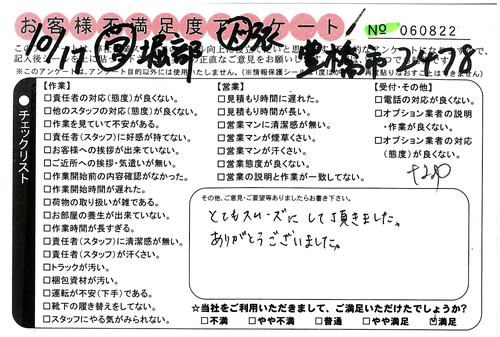 お客様不満足度アンケート
No 060822
チェックリスト
【作業】
□責任者の対応(態度)が良くない。
□他のスタッフの対応(態度)が良くない。
□作業を見ていて不安がある。
□責任者(スタッフ)に好感が持てない。
□お客様への挨拶が出来ていない。
□ご近所への挨拶・気遣いが無い。
□作業開始前の内容確認がなかった。
□作業開始時間が遅れた。
□荷物の取り扱いが雑である。
□お部屋の養生が出来ていない。
□作業時間が長すぎる。
□責任者(スタッフ)に清潔感が無い。
□責任者(スタッフ)が汗くさい。
□トラックが汚い。
□梱包資材が汚い。
□運転が不安(下手)である。
□靴下の履き替えをしてない。
□スタッフにやる気がみられない。
【営業】
□見積もり時間に遅れた。
□見積もり時間が長い。
□営業マンに清潔感が無い。
□営業マンが煙草くさい。
□営業マンが汗くさい。
□営業態度が良くない。
□営業の説明と作業が一致してない。
【受付・その他】
□電話の対応が良くない。
□オプション業者の説明
・作業が良くない。
□オプション業者の対応
(態度)が良くない。
その他、ご意見・ご要望等ありましたらお書き下さい。
とてもスムーズにして頂きました。
ありがとうございました。
☆当社をご利用いただきまして、ご満足いただけたでしょうか?
□不満 □やや不満 □普通 □やや満足 ☑満足